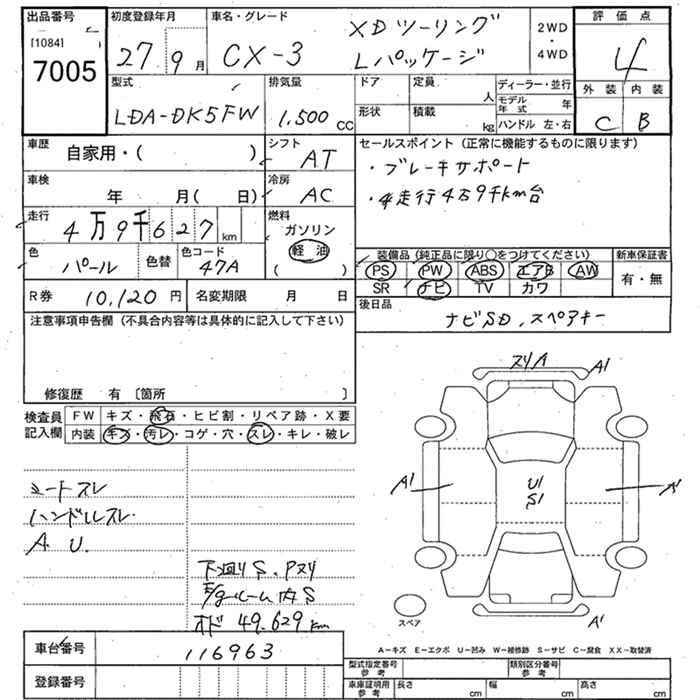 出品番号
[1084]
7005
初度登録年月
27 9月
車名・グレード
CX-3
XDツーリング
Lパッケージ
2WD
・
4WD
評価点
4
外装 内装
C B
型式
LDA-DK5FW
排気量
1,500 CC
ドア
定員
人
形状
積載
kg
ディーラー・並行
モデル年式 年
ハンドル 左・右
車歴
自家用・( )
シフト
AT
車検
年 月( 日)
冷房
AC
走行
4万9千627km
燃料
ガソリン
軽油
( )
色
パール
色替
色コード
47A
セールスポイント (正常に機能するものに限ります)
・ブレーキサポート
・走行4万9千km台
装備品 (純正品に限り○をつけてください)
PS PW ABS エアB AW
SR ナビ TV カワ
新車保証書
有・無
R券 10,120円
名変期限 月 日
後日品
ナビSD、スペアキー
注意事項申告欄 (不具合内容等は具体的に記入して下さい)
修復歴 有 〔箇所 〕
検査員記入欄
FW キズ・飛石・ヒビ割・リペア跡・X要
内装 キズ・汚レ・コゲ・穴・スレ・キレ・破レ
シートスレ
ハンドルスレ
A U.
下廻りS、Pヌリ
オド 49.629km
ヌリA A1
A1
U1
S1
A1
スペア
A1
A－キズ E－エクボ U－凹み W－補修跡 S－サビ C－腐食 XX－取替済
車台番号
116963
登録番号
型式指定番号 参考
類別区分番号 参考
車庫証明用 参考
長さ cm
幅 cm
高さ cm